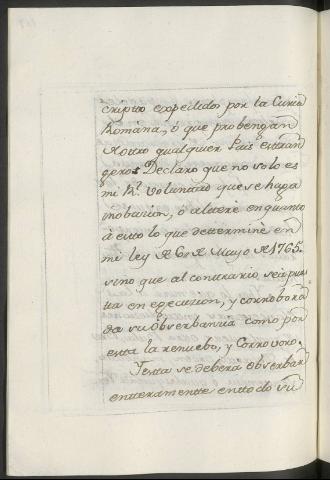 cripto expedidos por la Curia
Romana, ó que probengan
de otro qualquier Pais estran
geros Declaro que no solo es
mi Rl. voluntad que se haga
inobacion, ó altere en quanto
á esto lo que determiné en
mi ley de 6 de Mayo de 1765.
sino que al contrario se
ta en egecucion, y corrobora
da su obserbancia como por
esta la renuebo, y Corrovoro.
Yesta se deberá obserbar
enteramente entodo su